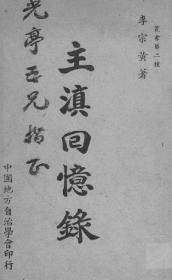 叢書第二種
李宗黃著
主滇回憶錄
光亭吾兄指正
中國地方自治學會印行